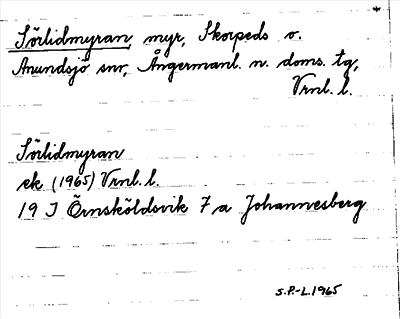 Sörlidmyran, myr, Skorpeds o.
Anundsjö snr, Ångermanl. n. doms. tg,
Vrnl. l.
Sörlidmyran
ek (1965) Vrnl. l.
19 J Örnsköldsvik 7 a Johannesberg
S.P.-L. 1965